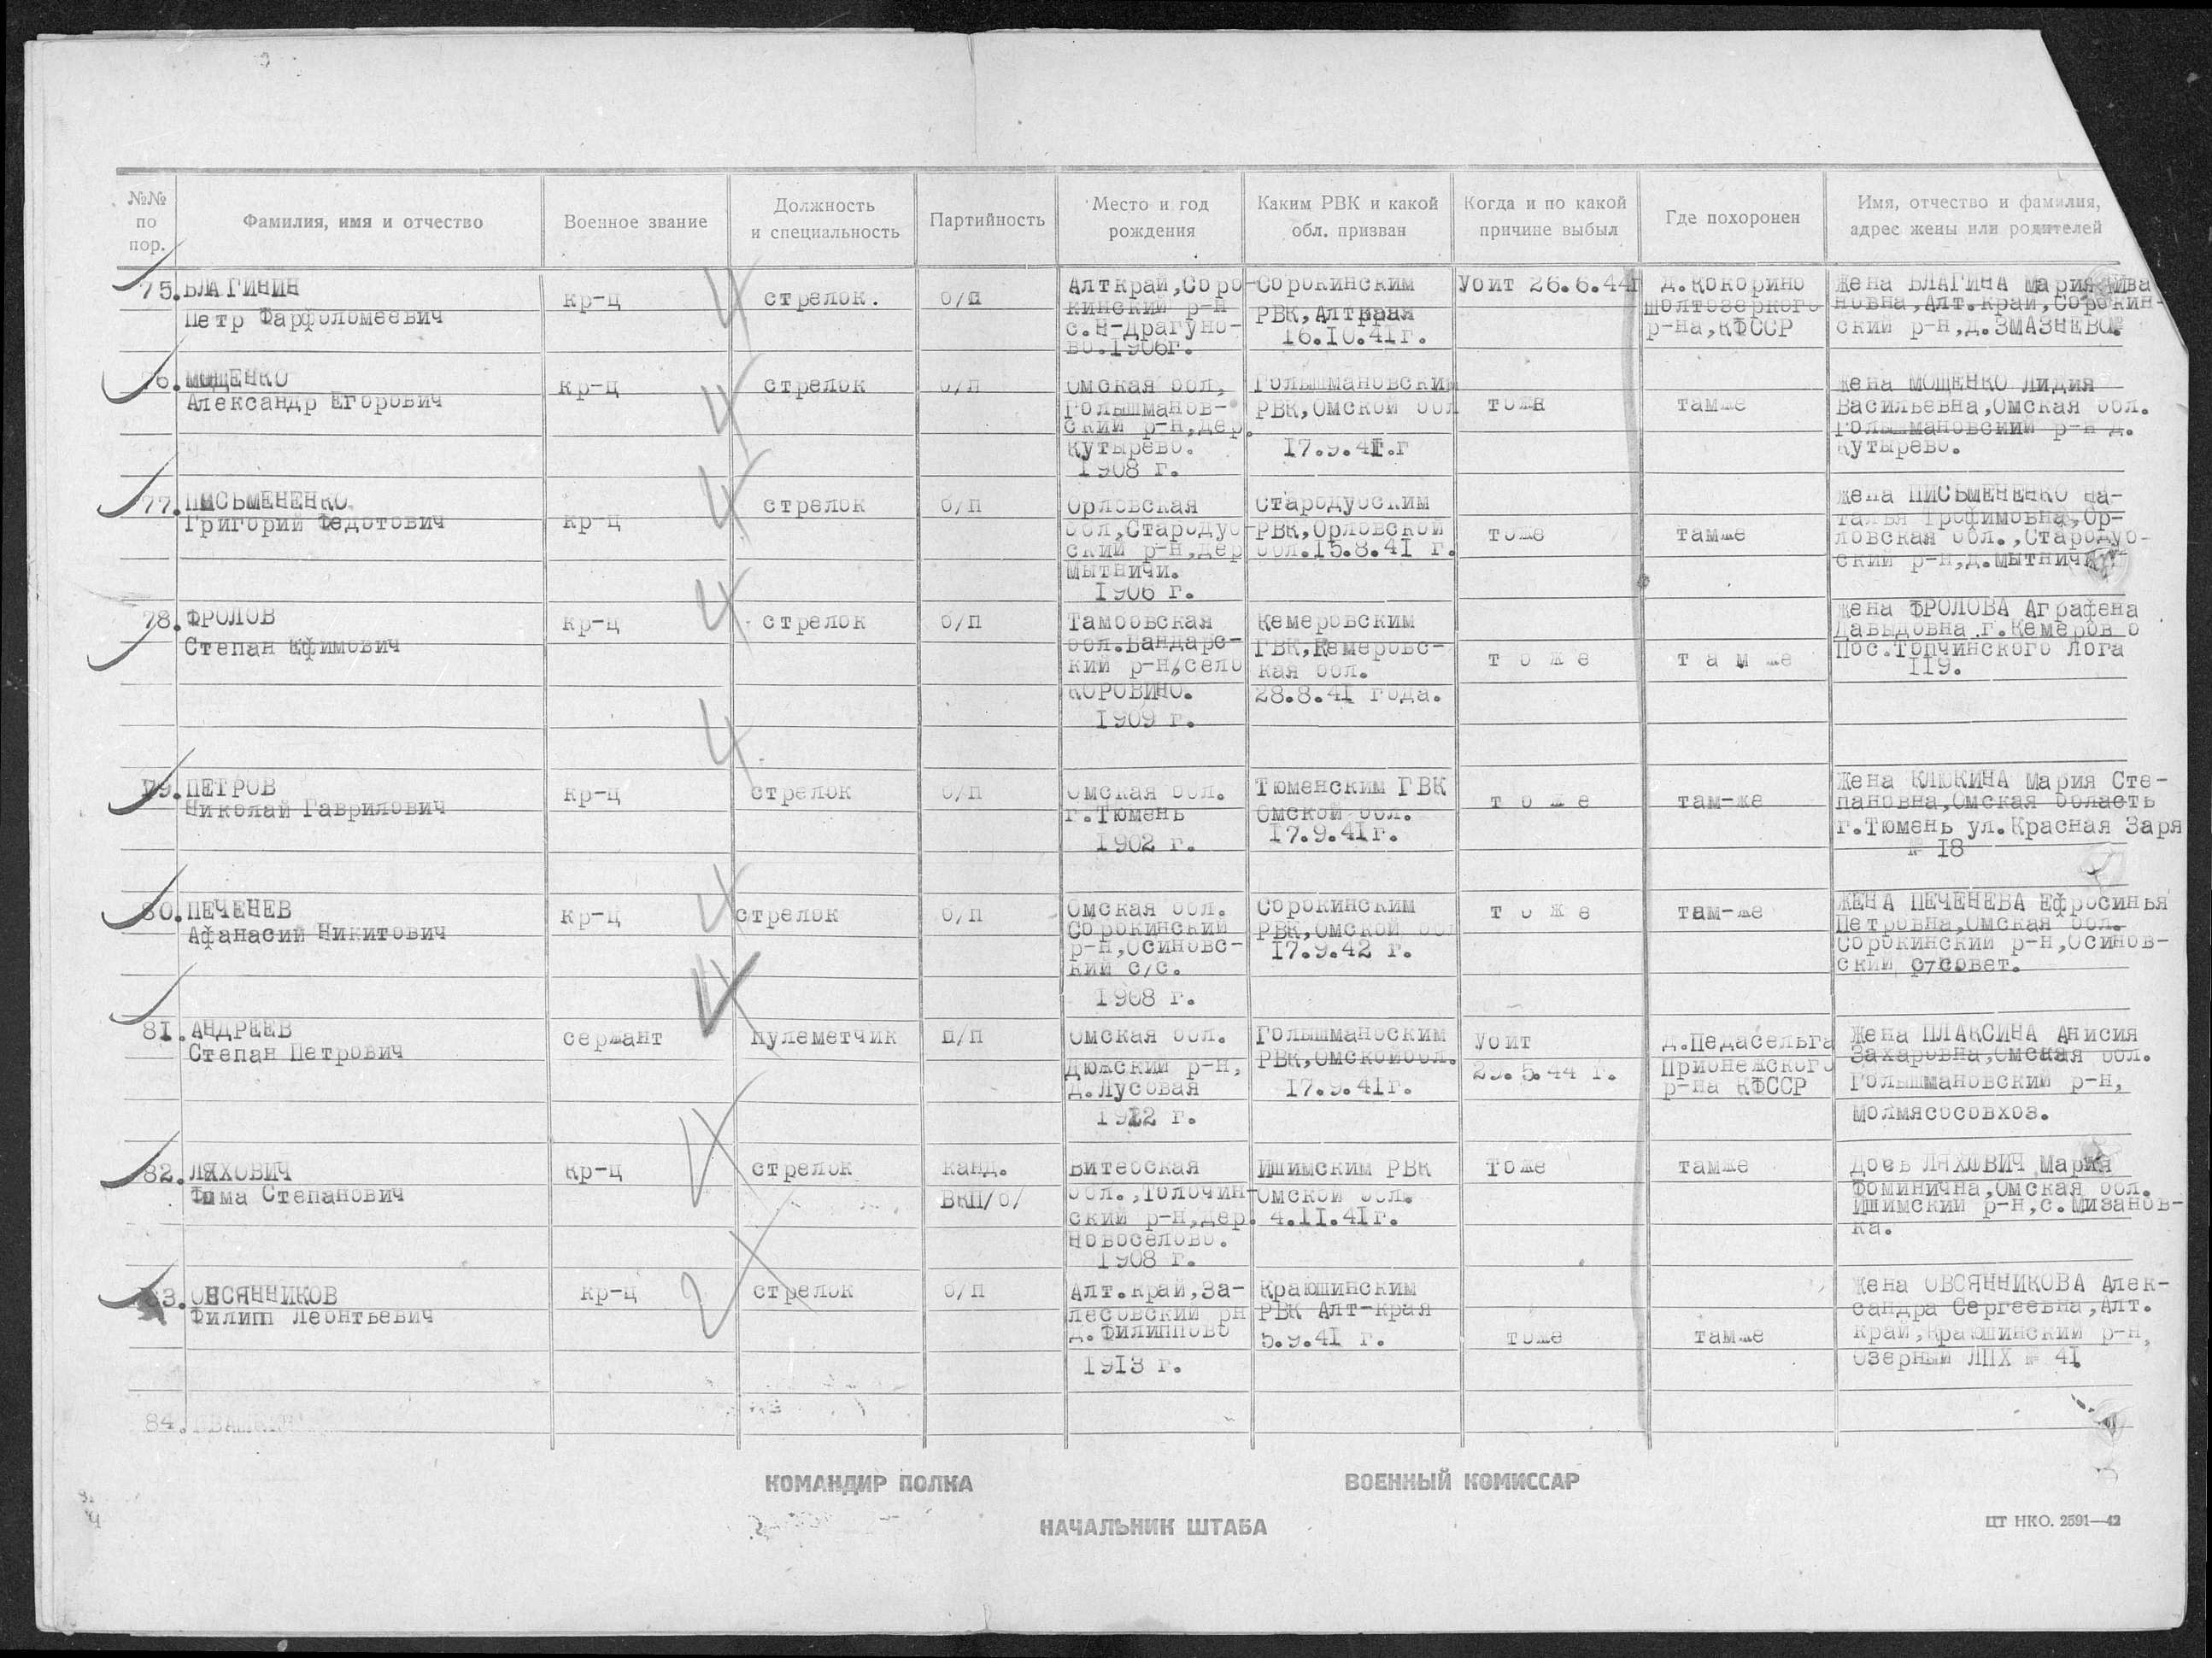 №№ по пор.
Фамилия, имя и отчество
Военное звание
Должность и специальность
Партийность
Место и год рождения
Каким РВК и какой обл. призван
Когда и по какой причине выбыл
Где похоронен
Имя, отчество и фамилия, адрес жены или родителей
75. БЛАГИНИН
Петр Фарфоломеевич
кр-ц
стрелок.
б/п
Алткрай,Соро-
кинский р-н
с.Н-Драгуно-
во.1906г.
Сорокинским
РВК,Алткрая
16.10.41г.
Убит 26.6.44г
д.Кокорино
Шолтозерского
р-на,КФССР
Жена БЛАГИНА Мария Ива
новна,Алт.край,Сорокин-
ский р-н,д.ЗМАЗНЕВО.
76. МОЩЕНКО
Александр Егорович
кр-ц
стрелок
б/п
Омская обл,
Голышманов-
ский р-н,дер.
Кутырево.
1908 г.
Голышмановским
РВК,Омской обл
17.9.41.г
тоже
тамже
Жена МОЩЕНКО Лидия
Васильевна,Омская обл.
Голышмановский р-н д.
Кутырево.
77. ПИСЬМЕНЕНКО
Григорий Федотович
кр-ц
стрелок
б/п
Орловская
обл,Стародуб-
ский р-н,дер
Мытничи.
1906 г.
Стародубским
РВК,Орловской
обл.15.8.41 г.
тоже
тамже
Жена ПИСЬМЕНЕНКО На-
талья Трофимовна,Ор-
ловская обл.,Стародуб-
ский р-н,д.Мытничи
78. ФРОЛОВ
Степан Ефимович
кр-ц
стрелок
б/п
Тамбовская
обл.Бандарс-
кий р-н,село
КОРОВИНО.
1909 г.
Кемеровским
ГВК,Кемеровс-
кая обл.
28.8.41 года.
т о ж е
т а м же
Жена ФРОЛОВА Аграфена
Давыдовна г.Кемеров о
Пос.Топчинского Лога
119.
79. ПЕТРОВ
Николай Гаврилович
кр-ц
стрелок
б/п
Омская обл.
г.Тюмень
1902 г.
Тюменским ГВК
Омской обл.
17.9.41г.
т о ж е
там-же
Жена КЛЮКИНА Мария Сте-
пановна,Омская область
г.Тюмень ул.Красная Заря
№ 18
80. ПЕЧЕНЕВ
Афанасий Никитович
кр-ц
стрелок
б/п
Омская обл.
Сорокинский
р-н,Осиновс-
кий с/с.
1908 г.
Сорокинским
РВК,Омской обл
17.9.42 г.
т о ж е
там-же
ЖЕНА ПЕЧЕНЕВА Ефросинья
Петровна,Омская обл.
Сорокинский р-н,Осинов-
ский с/совет.
81. АНДРЕЕВ
Степан Петрович
сержант
пулеметчик
б/п
Омская обл.
Дюжский р-н,
д.Лусовая
1912 г.
Голышманоским
РВК,Омскойобл.
17.9.41г.
Убит
29.5.44 г.
д.Педасельга
Прионежского
р-на КФССР
Жена ПЛАКСИНА Анисия
Захаровна,Омская обл.
Голышмановский р-н,
Молмясосовхоз.
82. ЛЯХОВИЧ
Фома Степанович
кр-ц
стрелок
канд.
ВКП/б/
Витебская
обл.,Толочин-
ский р-н,дер.
Новоселово.
1908 г.
Ишимским РВК
Омской обл.
4.11.41г.
Тоже
тамже
Дочь ЛЯХОВИЧ Мария
Фоминична,Омская обл.
Ишимский р-н,с.Мизанов-
ка.
83. ОВСЯННИКОВ
Филипп Леонтьевич
кр-ц
стрелок
б/п
Алт.край,За-
лесовский рн
д.Филиппово
1913 г.
Краюшинским
РВК Алт-края
5.9.41 г.
тоже
тамже
Жена ОВСЯННИКОВА Алек-
сандра Сергеевна,Алт.
край,Краюшинский р-н,
Озерный ЛПХ № 41
84.
КОМАНДИР ПОЛКА
ВОЕННЫЙ КОМИССАР
НАЧАЛЬНИК ШТАБА
ЦТ НКО. 2591—42